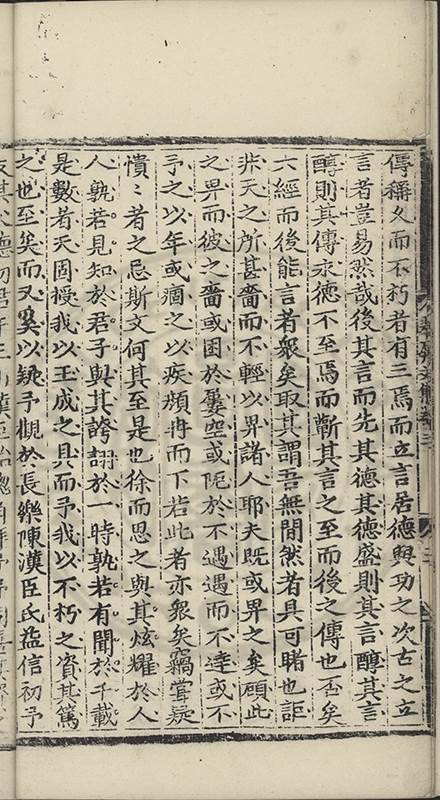 傳稱久而不朽者有三焉而立言居德與功之次古之立
言者豈易然哉後其言而先其德其德盛則其言醇其言
醇則其傳永德不至焉而蘄其言之至而後之傳也否矣
六經而後能言者衆矣取其謂吾無閒然者具可睹也詎
非天之所甚嗇而不輕以畀諸人耶夫既或畀之矣顧此
之畀而彼之嗇或困於屢空或阨於不遇遇而不達或不
予之以年或痼之以疾頻冉而下若此者亦衆矣竊嘗疑
憒〻者之忌斯文何其至是也徐而思之與其炫耀於人
人孰若見知於君子與其誇詡於一時孰若有聞於千載
是數者天固授我以玉成之具而予我以不朽之資其篤
之也至矣而又奚以疑予觀於長樂陳漢臣氏益信初予